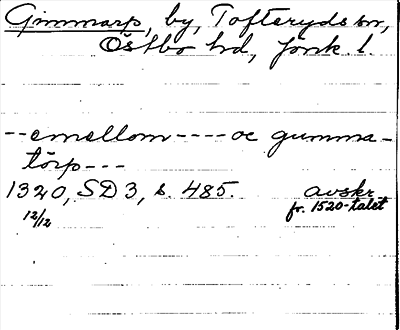 Gimmarp, by, Tofteryds sn,
Östbo hd, Jönk. l.
--emellom----oc gumma-
törp---
1320, SD 3, s. 485. avskr.
12/12 fr. 1520-talet